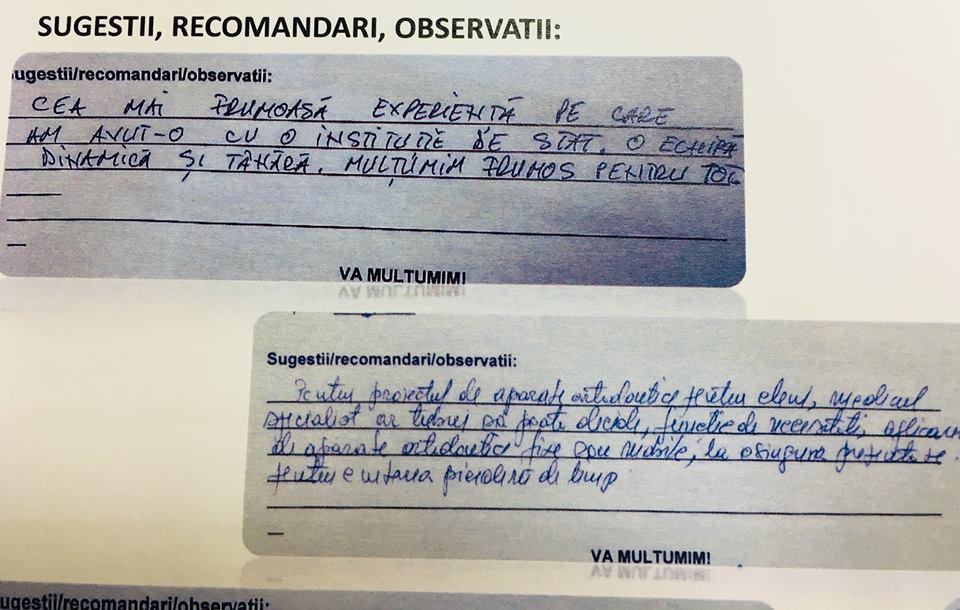 SUGESTII, RECOMANDARI, OBSERVATII:
ugestii/recomandari/observatii:
CEA MAI FRUMOASĂ EXPERIENȚĂ PE CARE
AM AVUT-O CU O INSTITUȚIE DE STAT. O ECHIPĂ
DINAMICĂ ȘI TÂNĂRĂ. MULȚUMIM FRUMOS PENTRU TOT
VA MULTUMIM!
Sugestii/recomandari/observatii:
Pentru proiectul de aparate ortodontice pentru elevi, medicul
specialist ar trebui să poată decide, funcție de necesități, aplicarea
de aparate ortodontice fixe sau mobile, la o singura
pentru a evita pierderea de timp
VA MULTUMIM!
ugestii/recomandari/observatii: